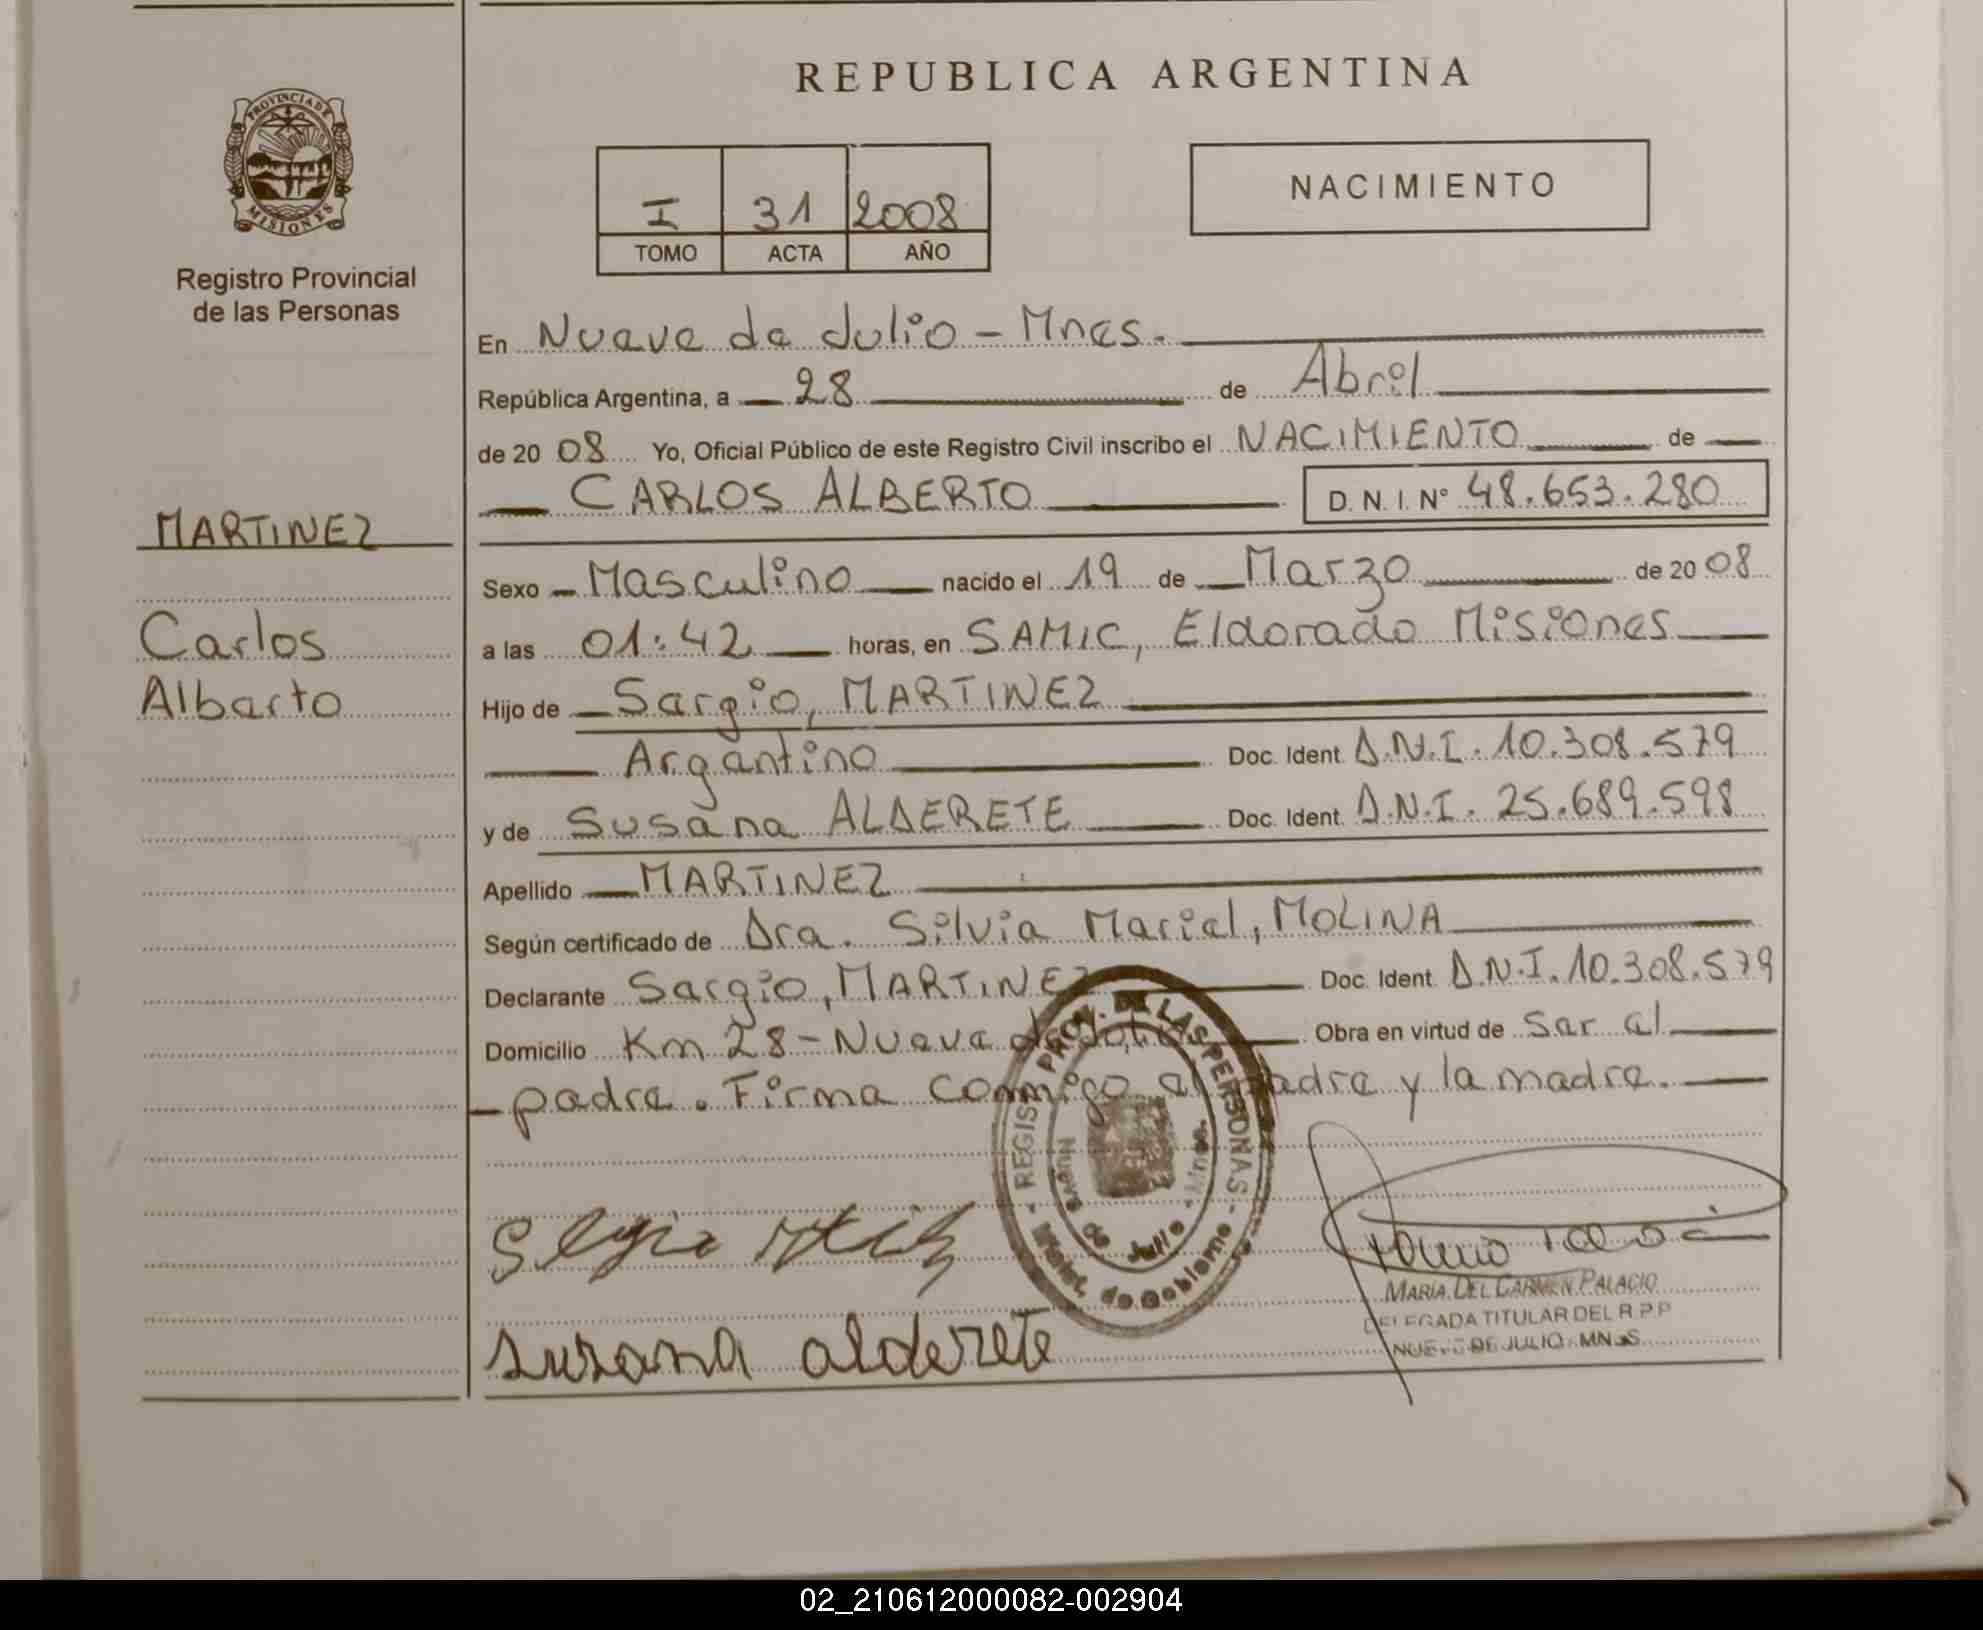 REPUBLICA ARGENTINA
PROVINCIA DE
MISIONES
Registro Provincial
de las Personas
I 31 2008
TOMO ACTA AÑO
NACIMIENTO
En Nueve de Julio - Mnes.
República Argentina, a 28 de Abril
de 20 08 Yo, Oficial Público de este Registro Civil inscribo el NACIMIENTO de
CARLOS ALBERTO D. N. I. N° 48.653.280
MARTINEZ
Carlos
Alberto
Sexo Masculino nacido el 19 de Marzo de 20 08
a las 01:42 horas, en SAMIC, Eldorado Misiones
Hijo de Sergio, MARTINEZ
Argentino Doc. Ident. D.N.I. 10.308.579
y de Susana ALDERETE Doc. Ident. D.N.I. 25.689.598
Apellido MARTINEZ
Según certificado de Dra. Silvia Mariel, MOLINA
Declarante Sergio, MARTINEZ Doc. Ident. D.N.I. 10.308.579
Domicilio Km 28 - Nueve de Julio Obra en virtud de ser el
padre. Firma conmigo el padre y la madre.
REGIST. PROV. DE LAS PERSONAS
Minist. de Gobierno
Nueve de Julio - Mnes.
Susana alderete
MARIA DEL CARMEN PALACIO
DELEGADA TITULAR DEL R.P.P
NUEVE DE JULIO - MNES
02_210612000082-002904